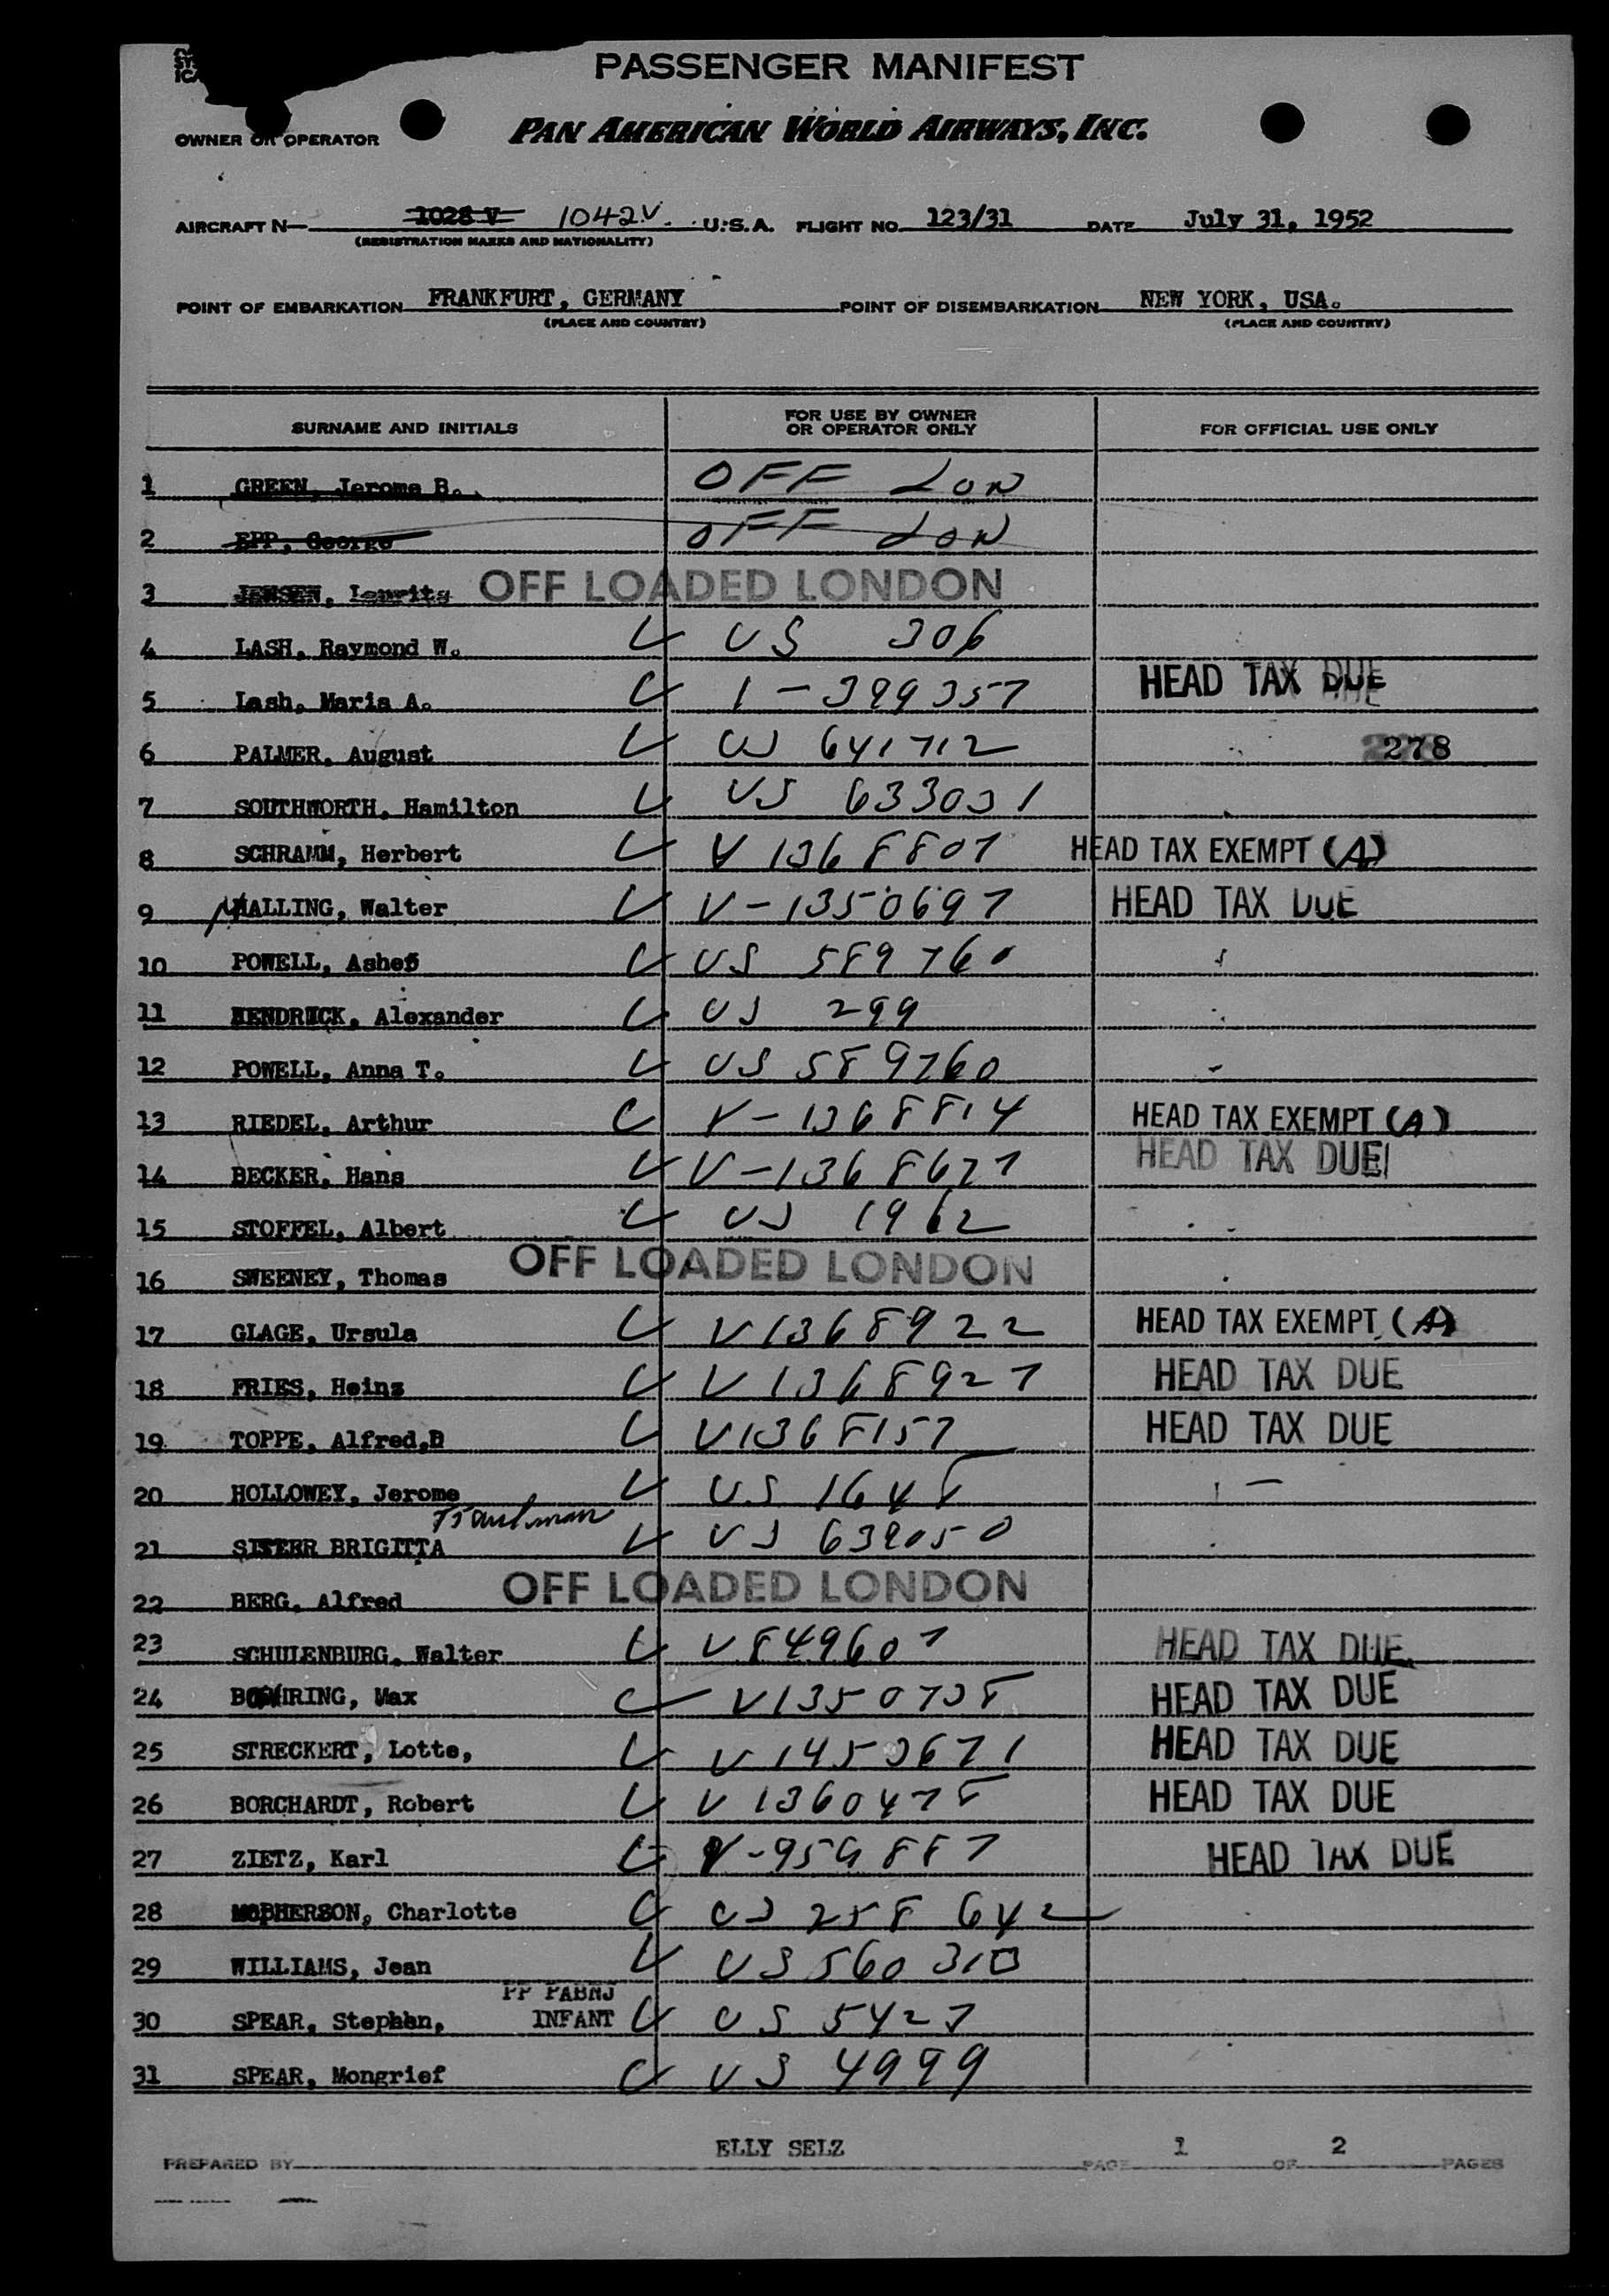 PASSENGER MANIFEST
OWNER OR OPERATOR PAN AMERICAN WORLD AIRWAYS, INC.
AIRCRAFT N— 1028 V 1042V. U.S.A. FLIGHT NO. 123/31 DATE July 31, 1952
(REGISTRATION MARKS AND NATIONALITY)
POINT OF EMBARKATION FRANKFURT, GERMANY POINT OF DISEMBARKATION NEW YORK, USA.
(PLACE AND COUNTRY) (PLACE AND COUNTRY)
SURNAME AND INITIALS FOR USE BY OWNER OR OPERATOR ONLY FOR OFFICIAL USE ONLY
1 GREEN, Jerome B. OFF LON
2 EPP, George OFF LON
3 JENSEN, OFF LOADED LONDON
4 LASH, Raymond W. US 306
5 Lash, Maria A. 1-399357 HEAD TAX DUE
6 PALMER, August US 641712 278
7 SOUTHWORTH, Hamilton US 633031
8 SCHRAMM, Herbert V 1368807 HEAD TAX EXEMPT (A)
9 MALLING, Walter V-1350697 HEAD TAX DUE
10 POWELL, Ashes US 589760
11 HENDRICK, Alexander US 299
12 POWELL, Anna T. US 589760
13 RIEDEL, Arthur V-1368814 HEAD TAX EXEMPT (A)
14 BECKER, Hans V-1368627 HEAD TAX DUE
15 STOFFEL, Albert US 1962
16 SWEENEY, Thomas OFF LOADED LONDON
17 GLAGE, Ursula V1368922 HEAD TAX EXEMPT (A)
18 FRIES, Heinz V1368927 HEAD TAX DUE
19 TOPPE, Alfred,D V1368157 HEAD TAX DUE
20 HOLLOWEY, Jerome US 1648 —
21 BRIGITTA US 639050
22 BERG, Alfred OFF LOADED LONDON
23 SCHULENBURG, Walter V849607 HEAD TAX DUE
24 Max V1350738 HEAD TAX DUE
25 STRECKERT, Lotte, V1453671 HEAD TAX DUE
26 BORCHARDT, Robert V1360478 HEAD TAX DUE
27 ZIETZ, Karl V-959887 HEAD TAX DUE
28 McPHERSON, Charlotte US 258642
29 WILLIAMS, Jean US 560310
PP PABNJ
30 SPEAR, Stephen, INFANT US 5427
31 SPEAR, Mongrief US 4999
PREPARED BY ELLY SELZ PAGE 1 OF 2 PAGES